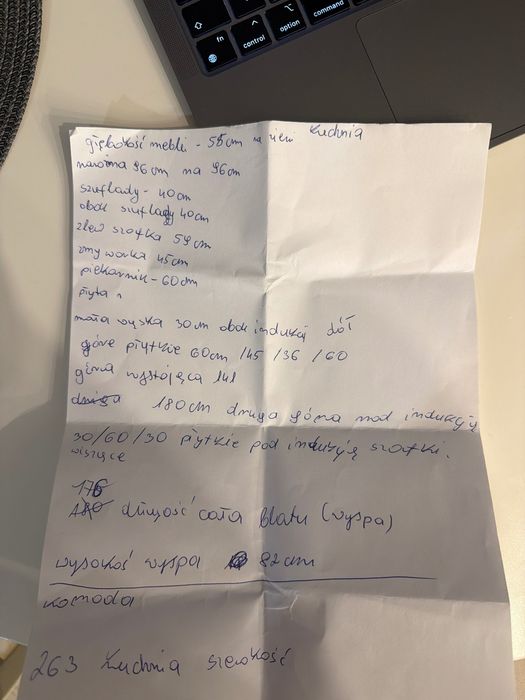 fn
control
option
command
Kuchnia
głębokość mebli - 55cm na ziemi
narożna 96cm na 96cm
szuflady - 40cm
obok szuflady 40cm
zlew szafka 59cm
zmywarka 45cm
piekarnik - 60cm
płyta
mała wąska 30cm obok indukcji dół
górne płytkie 60cm /45 /36 /60
górna wystająca
180cm druga górna nad indukcją
30/60/30 płytkie pod indukcją szafki.
wiszące
176
długość cała blatu (wyspa)
wysokość wyspa 82cm
komoda
263 kuchnia szerokość